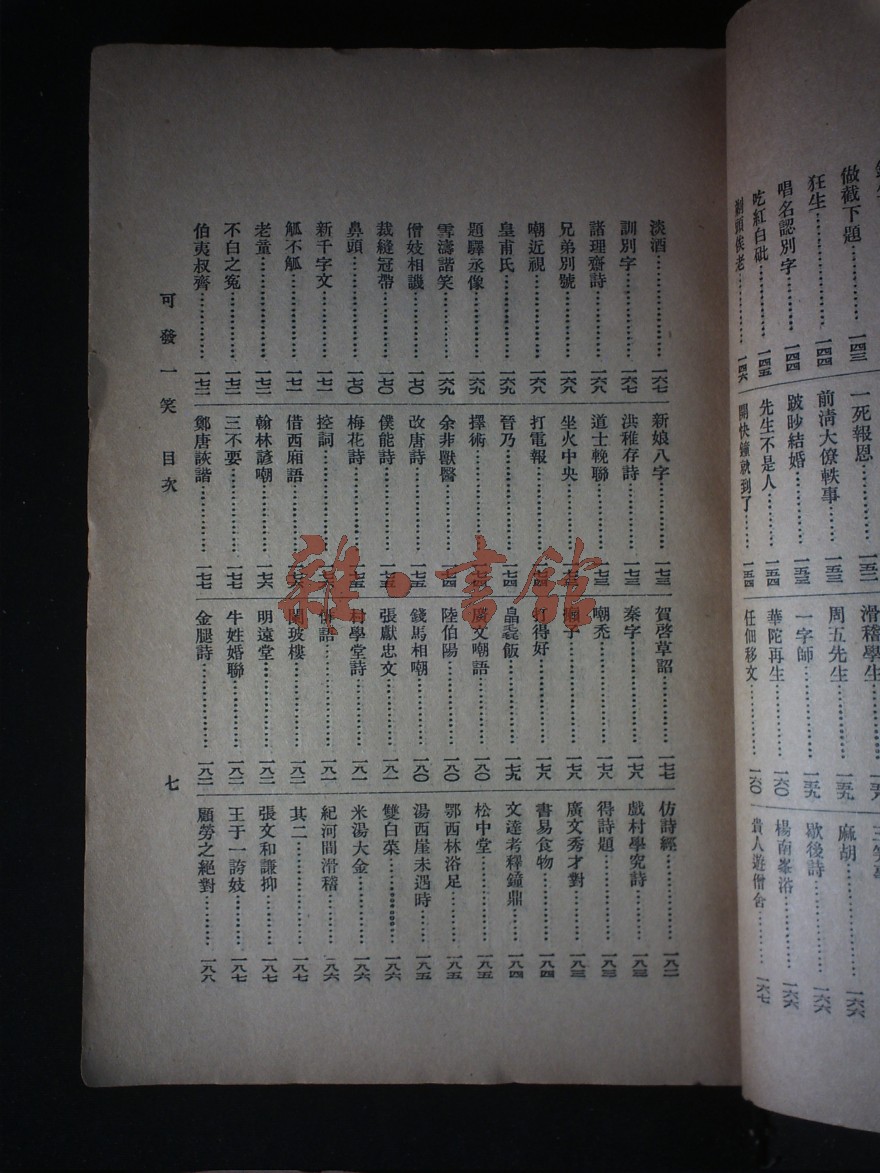 做截下題……一四三
狂生……一四四
唱名認別字……一四四
吃紅白砒……一四五
剃頭俟老……一四六
一死報恩……一五二
前清大僚軼事……一五三
跛眇結婚……一五三
先生不是人……一五四
開快鐘就到了……一五四
滑稽學生
周五先生……一五九
一字師……一五九
華陀再生……一六〇
任佃移文……一六〇
麻胡……一六六
歇後詩……一六六
楊南峯浴……一六六
貴人遊僧舍……一六七
淡酒……一六七
訓別字……一六七
諸理齋詩……一六八
兄弟別號……一六八
嘲近視……一六八
皇甫氏……一六九
題驛丞像……一六九
雪濤諧笑……一六九
僧妓相譏……一七〇
裁縫冠帶……一七〇
鼻頭……一七〇
新千字文……一七一
觚不觚……一七一
老童……一七二
不白之冤……一七二
伯夷叔齊……一七二
新娘八字……一七三
洪稚存詩……一七三
道士輓聯……一七三
坐火中央……一七三
打電報……一七四
晉乃……一七四
擇術……一七四
余非獸醫……一七四
改唐詩……一七五
僕能詩……一七五
梅花詩……一七五
控詞……一七六
借西廂語……一七六
翰林諺嘲……一七六
三不要……一七七
鄭唐詼諧……一七七
賀啓草詔……一七七
秦字……一七八
嘲禿……一七八
子……一七八
打得好……一七八
皛毳飯……一七九
廣文嘲語……一八〇
陸伯陽……一八〇
錢馬相嘲……一八〇
張獻忠文……一八一
村學堂詩……一八一
俳語……一八一
闌玻樓……一八二
明遠堂……一八二
牛姓婚聯……一八二
金腿詩……一八二
仿詩經……一八二
戲村學究詩……一八三
得詩題……一八三
廣文秀才對……一八三
書易食物……一八四
文達考釋鐘鼎……一八四
松中堂……一八五
鄂西林浴足……一八五
湯西崖未遇時……一八五
雙白菜……一八六
米湯大金……一八六
紀河間滑稽……一八六
其二……一八七
張文和謙抑……一八七
王于一謗妓……一八七
顧勞之絕對……一八八
可發一笑 目次 七
雜·書館